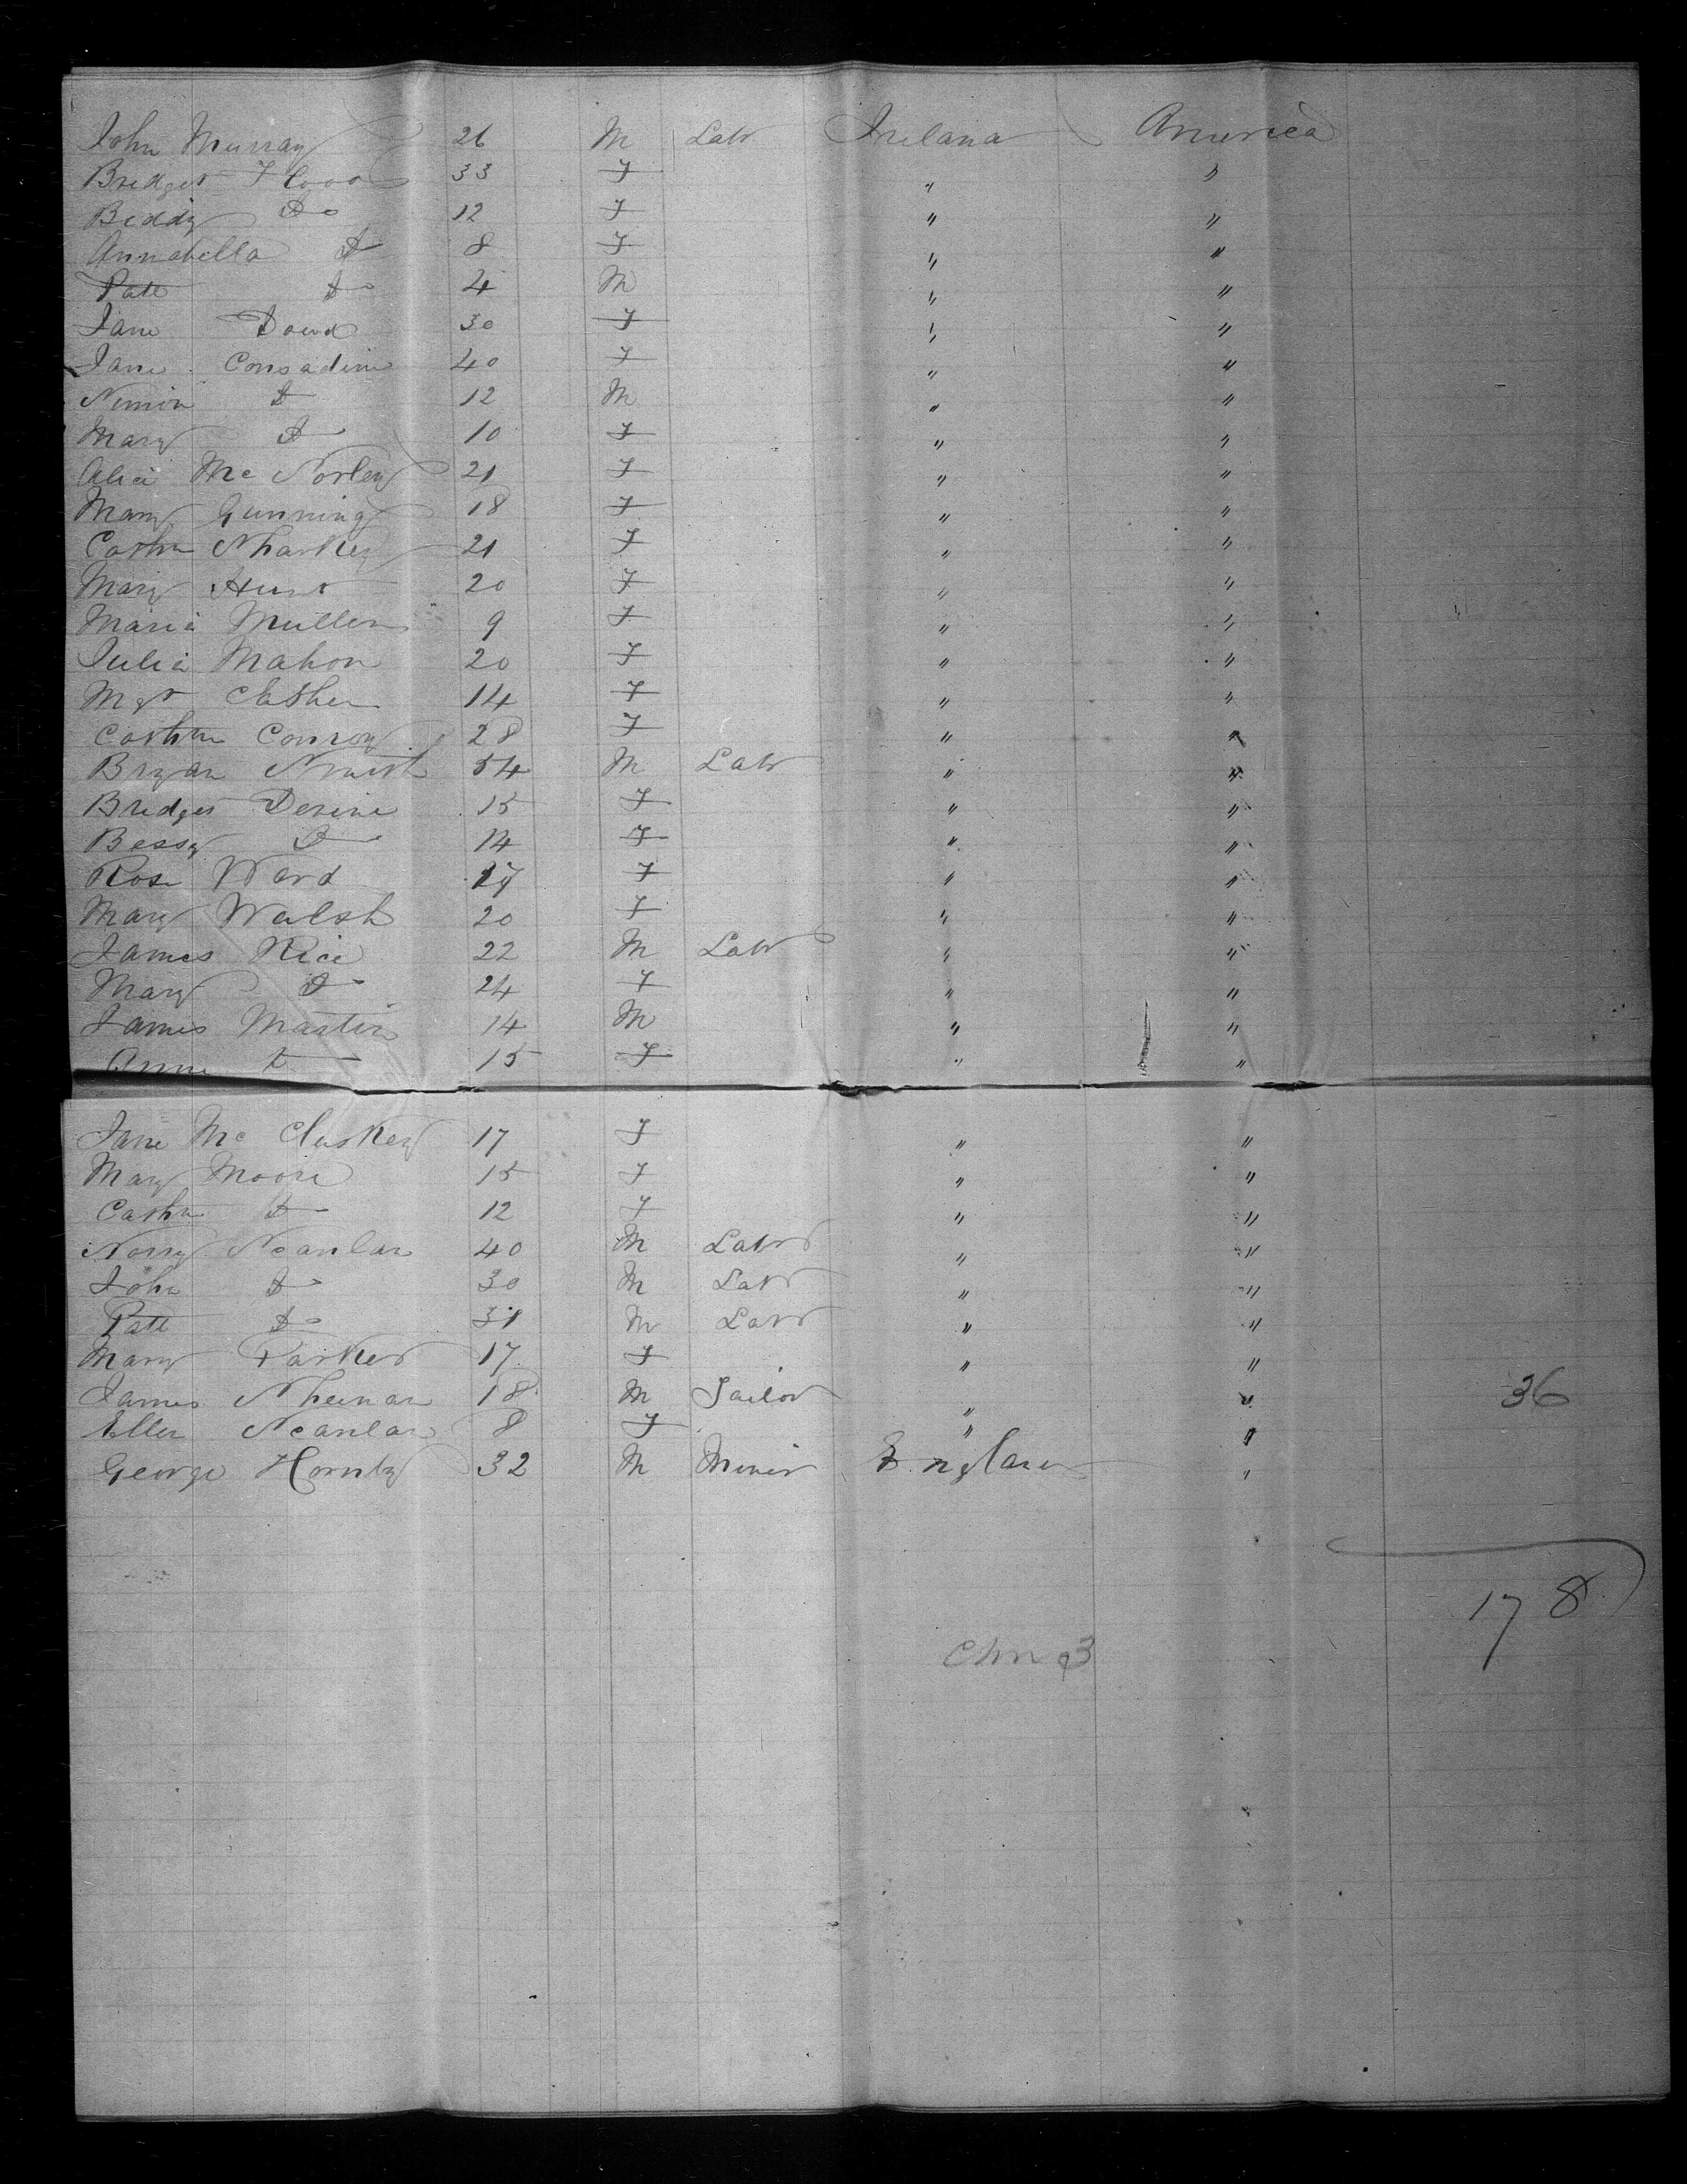 John Murray 26 M Labr Ireland America
Bridget Flood 33 F " "
Biddy Do 12 F " "
Annabella Do 8 F " "
Patt Do 4 M " "
Jane Dowd 30 F " "
Jane Consadine 40 F " "
Do 12 M " "
Mary Do 10 F " "
Alice Mc Norley 21 F " "
Mary Gunning 18 F " "
Cathn Sharkey 21 F " "
Mary Hunt 20 F " "
Maria Mullen 9 F " "
Julia Mahon 20 F " "
Mgt 14 F " "
Cathne Conroy 28 F " "
Bryan Smith 54 M Labr " "
Bridget Devine 15 F " "
Bessy Do 14 F " "
Rose Ward F " "
Mary Walsh 20 F " "
James Rice 22 M Labr " "
Mary Do 24 F " "
James Martin 14 M " "
Anne Do 15 F " "
Jane Mc Cluskey 17 F " "
Mary Moore 15 F " "
Cathn Do 12 F " "
Scanlan 40 M Labr " "
John Do 30 M Labr " "
Patt Do 31 M Labr " "
Mary Parker 17 F " "
James Sheenan 18 M Tailor " " 36
Ellen Scanlan 8 F " "
George Hornby 32 M Miner England "
178